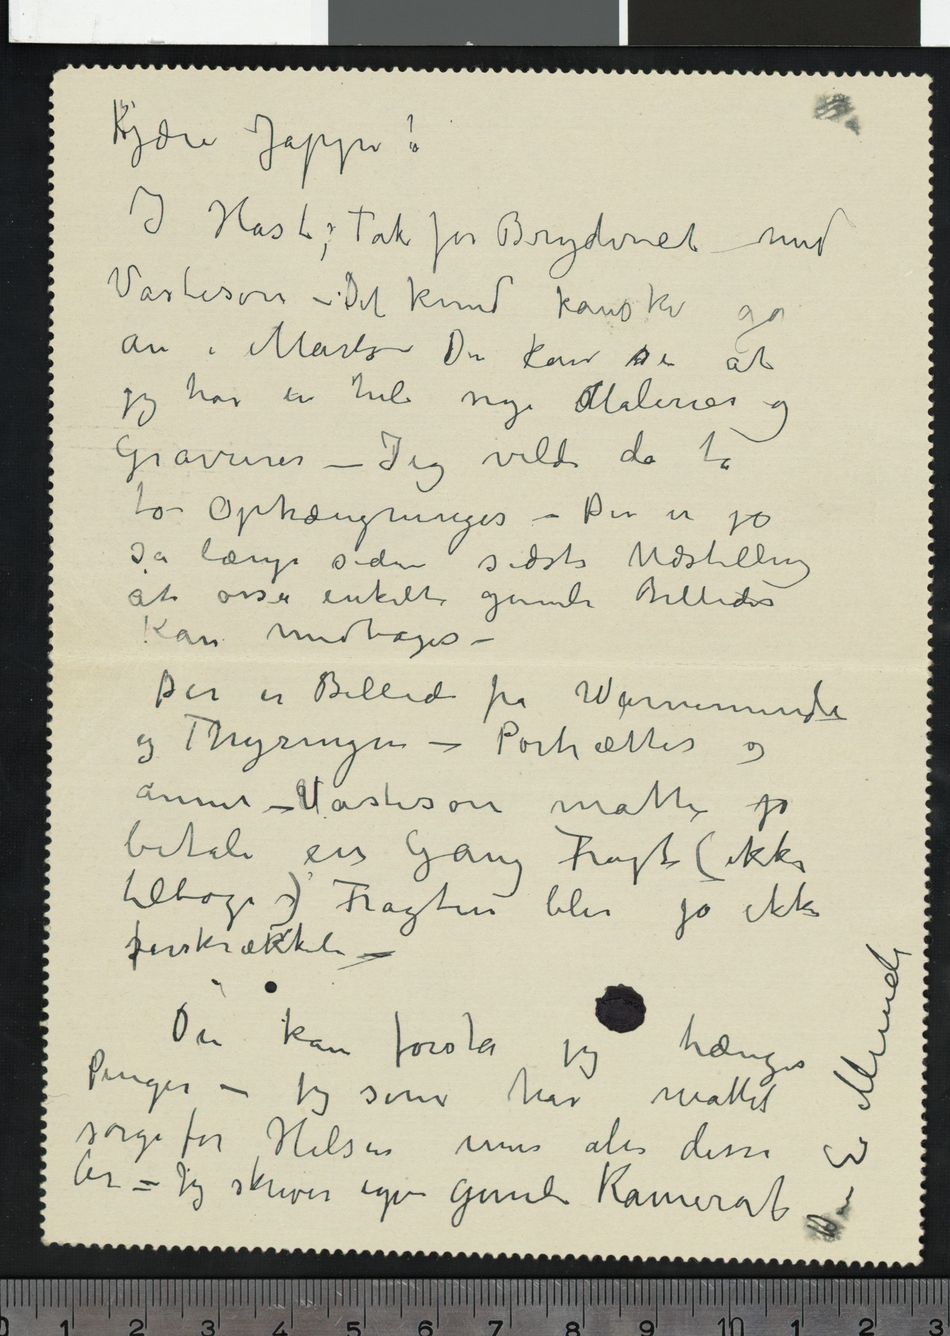 Kjære Jappe!
I Hast; Tak for Brydvriet med
Vasteson – Det kund kanske gå
an i Marts Du kan se at
jeg har en hel nye Malerier og
Gravurer – Jeg vilde da ta
to Ophængninger – Der er jo
så længe siden sidste Udstilling
at osså enkelte gamle Billeder
kan medtages –
Der er Billeder fra Warnemünde
og Thyringen – Portrætter og
annet – Vasteson måtte jo
betale en Gang Fragt (ikke
tilbage) Fragten blir jo ikke
forskrækkeli –
Du kan forstå jeg trænger
Penger – Jeg som har måttet
sørge for Helsen min alle disse
år – Jeg skriver igjen gamle Kamerat
Din E Munch
0 1 2 3 4 5 6 7 8 9 10 1 2 3